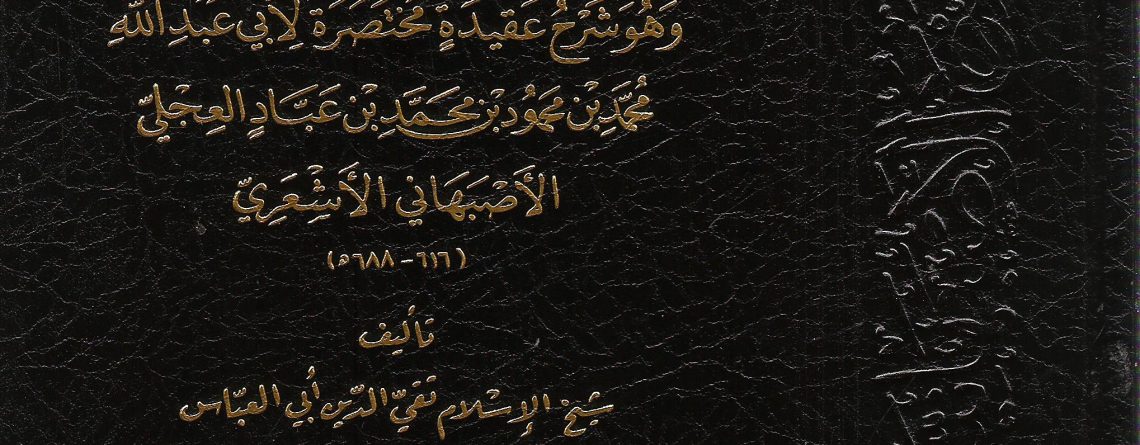 وَهُوَ شَرْحُ عَقِيدَةٍ مُخْتَصَرَة لِأَبِي عَبْدِ اللَّهِ
مُحَمَّدِ بْنِ مَحْمُود بْنِ مُحَمَّدِ بْنِ عَبَّادِ العِجْلِيّ
الأَصْبَهَانِي الأَشْعَرِيّ
(٦١٦ - ٦٨٨ھ)
تأليف
شيخ الإِسْلام تقيّ الدّين أبي العبّاس